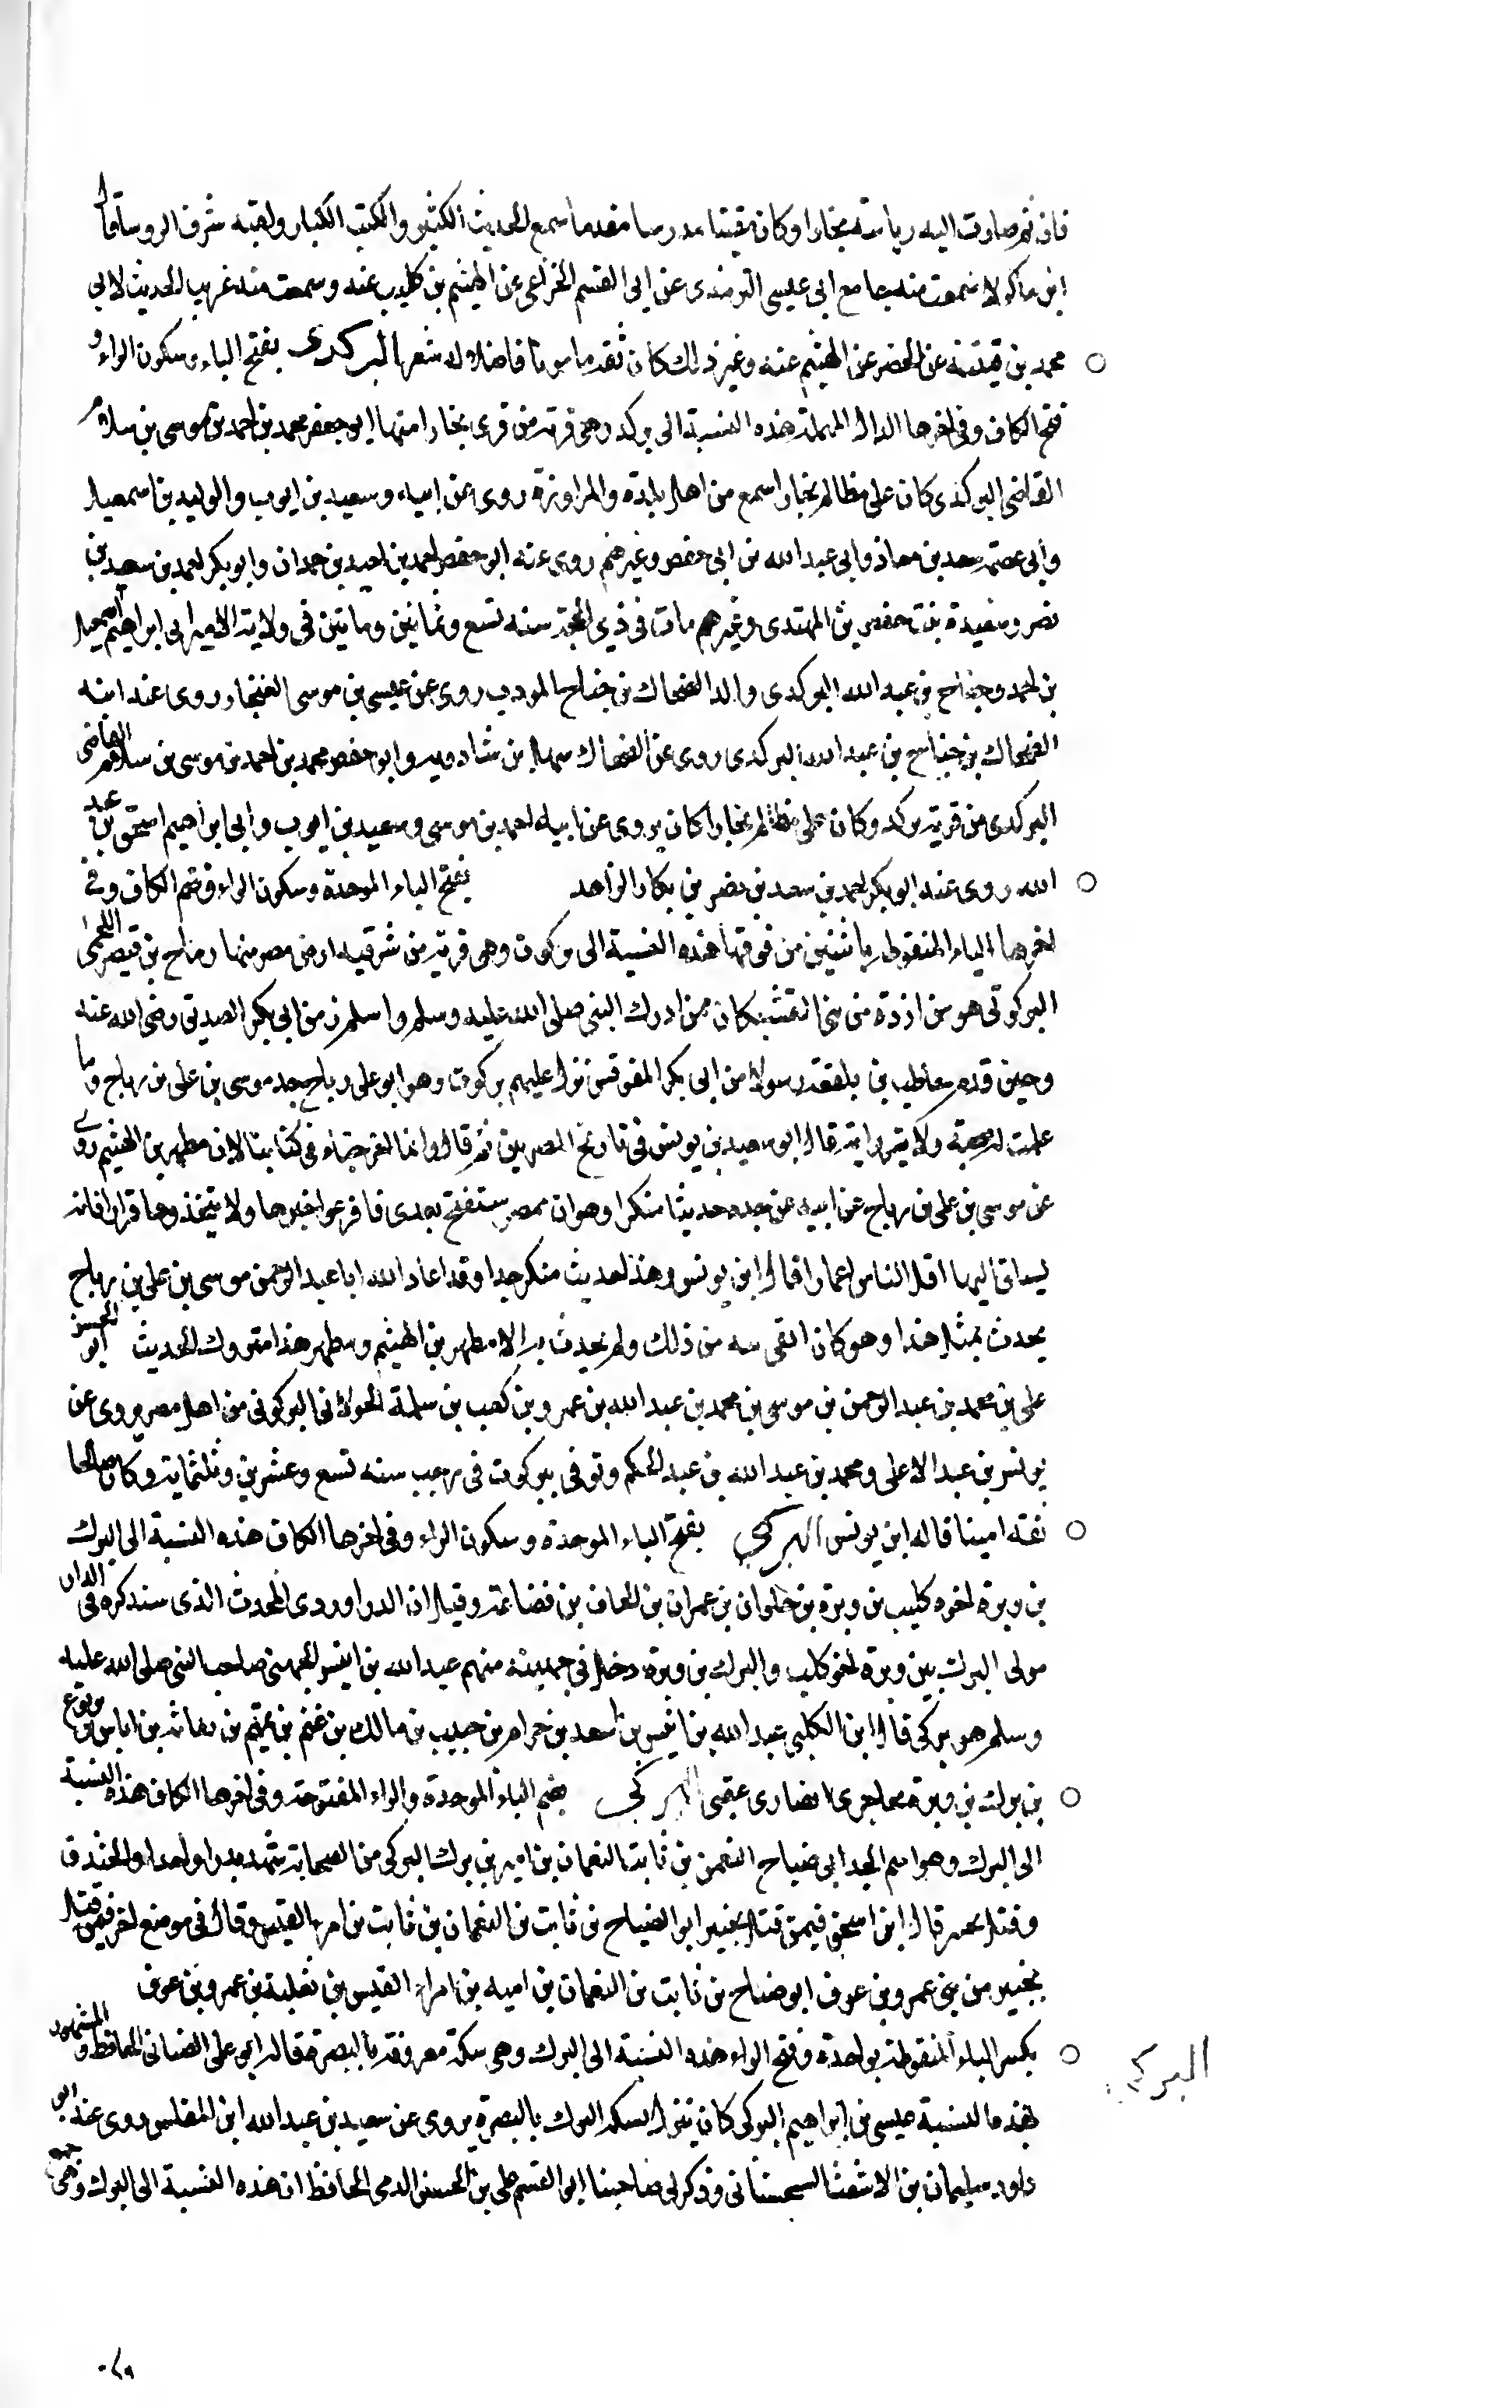 فان ثم صارت اليه رياسة بخارا وكان فقيها مدرسا مقدما سمع الحديث الكثير والكتب الكبار ولقبه شرف الروسا قال
ابن ماكولا سمعت منه جامع ابى عيسى الترمذى عن ابى القسم الخزاعى عن الهيثم بن كليب عنه وسمعت منه غريب الحديث لابى
محمد بن قتيبة عن الخضر عن الهيثم عنه وغير ذلك كان ثقة مامونا فاضلا له شعر البركدى بفتح الباء وسكون الراء و
فتح الكاف وفى اخرها الدال المهملة هذه النسبة الى بركد وهى قرية من قرى بخارا منها ابو جعفر محمد بن احمد بن موسى بن سلام
القاضى البركدى كان على مظالم بخارا سمع من اهل بلدة والمراوزة روى عن ابيه وسعيد بن ايوب والوليد بن اسمعيل
وابى عصمة سعد بن معاذ وابى عبد الله بن ابى حفص وغيرهم روى عنه ابو حفص احمد بن احيد بن حمدان وابو بكر احمد بن سعد بن
نصر وسفيدة بنت حفص بن المهتدى وغيرهم مات فى ذي الحجة سنه تسع وثمانين وماتين فى ولاية الامير ابى ابراهيم اسمعيل
بن احمد وجناح بن عبد الله البركدى والد الضحاك بن جناح المودب روى عن عيسى بن موسى الغنجار روى عنه ابنه
الضحاك بن جناح بن عبد الله البركدى روى عن الضحاك سهل بن شادويه وابو حفص محمد بن احمد بن موسى بن سلام القاضى
البركدى من قرية بركد وكان على مظالم بخارا كان يروى عن ابيه احمد بن موسى وسعيد بن ايوب وابى ابراهيم اسحق بن عبد
الله روى عنه ابو بكر احمد بن سعد بن نصر بن بكار الزاهد بفتح الباء الموحدة وسكون الراء وضم الكاف وفى
اخرها التاء المنقوطة باثنتين من فوقها هذه النسبة الى بركوت وهى قرية من شرقيه ارض مصر منها رباح بن قيصر اللخمى
البركوتى هو من ازدة من بنى القشب كان ممن ادرك النبى صلى الله عليه وسلم واسلم زمن ابى بكر الصديق رضى الله عنه
وحين قدم حاطب بن بلتعة رسولا من ابى بكر المقوقس نزل عليهم بركوت وهو ابو على رباح جد موسى بن على بن رباح وما
علمت له صحبة ولا يتم رواية قال ابو سعيد بن يونس فى تاريخ المصريين ثم قال وانما اخرجناه فى كتابنا لان مطهر بن الهيثم روى
عن موسى بن على بن رباح عن ابيه عن جده حديثا منكرا وهو ان مصر ستفتح بعدى فافرعوا خيرها ولا تتخذوها قرارا فانه
يساق اليها اقل الناس اعمارا قال ابن يونس وهذا حديث منكر جدا وقد اعاذ الله ابا عبد الرحمن موسى بن على بن رباح
يحدث بمثل هذا وهو كان اتقى لله من ذلك ولم يحدث به الا مطهر بن الهيثم ومطهر هذا متروك الحديث ابو الحسن
على بن محمد بن عبد الرحمن بن موسى بن محمد بن عبد الله بن عمرو بن كعب بن سلمة الخولانى البركوتى من اهل مصر يروى عن
يونس بن عبد الاعلى ومحمد بن عبد الله بن عبد الحكم وتوفى ببركوت فى رجب سنه تسع وعشرين وثلثماية وكان صالحا
ثقة امينا قاله ابن يونس البركى بفتح الباء الموحدة وسكون الراء وفى اخرها الكاف هذه النسبة الى البرك
بن وبرة اخوه كليب بن وبرة بن حلوان بن عمران بن الحاف بن قضاعة وقيل ان الدراوردى المحدث الذى سنذكره فى الدال
مولى البرك بين وبرة اخو كليب والبرك بن وبرة دخل فى جهينة منهم عبد الله بن انيس الجهنى صاحب النبى صلى الله عليه
وسلم هو بركى قال ابن الكلبى عبد الله بن انيس بن اسعد بن حرام بن حبيب بن مالك بن غنم بن تميم بن نفاثة بن اياس بن يربوع
بن برك بن وبرة مهاجرى انصارى عقبى البركى بضم الباء الموحدة والراء المفتوحة وفى اخرها الكاف هذه النسبة
الى البرك وهو اسم الجد ابى ضياح النعمن بن ثابت النعمان بن اميه بن برك البركى من الصحابة شهد بدرا واحدا والخندق
وقتل بخيبر قال ابن اسحق فيمن قتل بخيبر ابو الضياح بن ثابت بن النعمان بن ثابت بن امرء القيس وقال فى موضع اخر فيمن قتل
بخيبر من بنى عمرو بن عوف ابو ضياح بن ثابت بن النعمان بن اميه بن امراء القيس بن ثعلبة بن عمرو بن عوف
البركى بكسر الباء المنقوطة بواحدة وفتح الراء هذه النسبة الى البرك وهى سكة معروفة بالبصرة قال ابو على الغسانى الحافظ والمشهور
بهذه النسبة عيسى بن ابراهيم البركى كان ينزل السكة البرك بالبصرة يروى عن سعيد بن عبد الله ابن المغلس روى عنه ابو
داود سليمان بن الاشعث السجستانى وذكر لى صاحبنا ابو القسم على بن الحسن الدمى الحافظ ان هذه النسبة الى البرك وهى